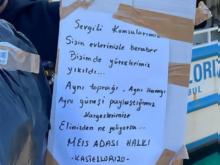 Sevgili Komşularımız
Sizin evlerinizle beraber
Bizim de yüreklerimiz
yıkıldı...
Aynı toprağı, Aynı Havayı
Aynı güneşi paylaştığımız
Kardeşlerimize
Elimizden ne geliyorsa...
MEİS ADASI HALKI
-KASTELLORIZO-